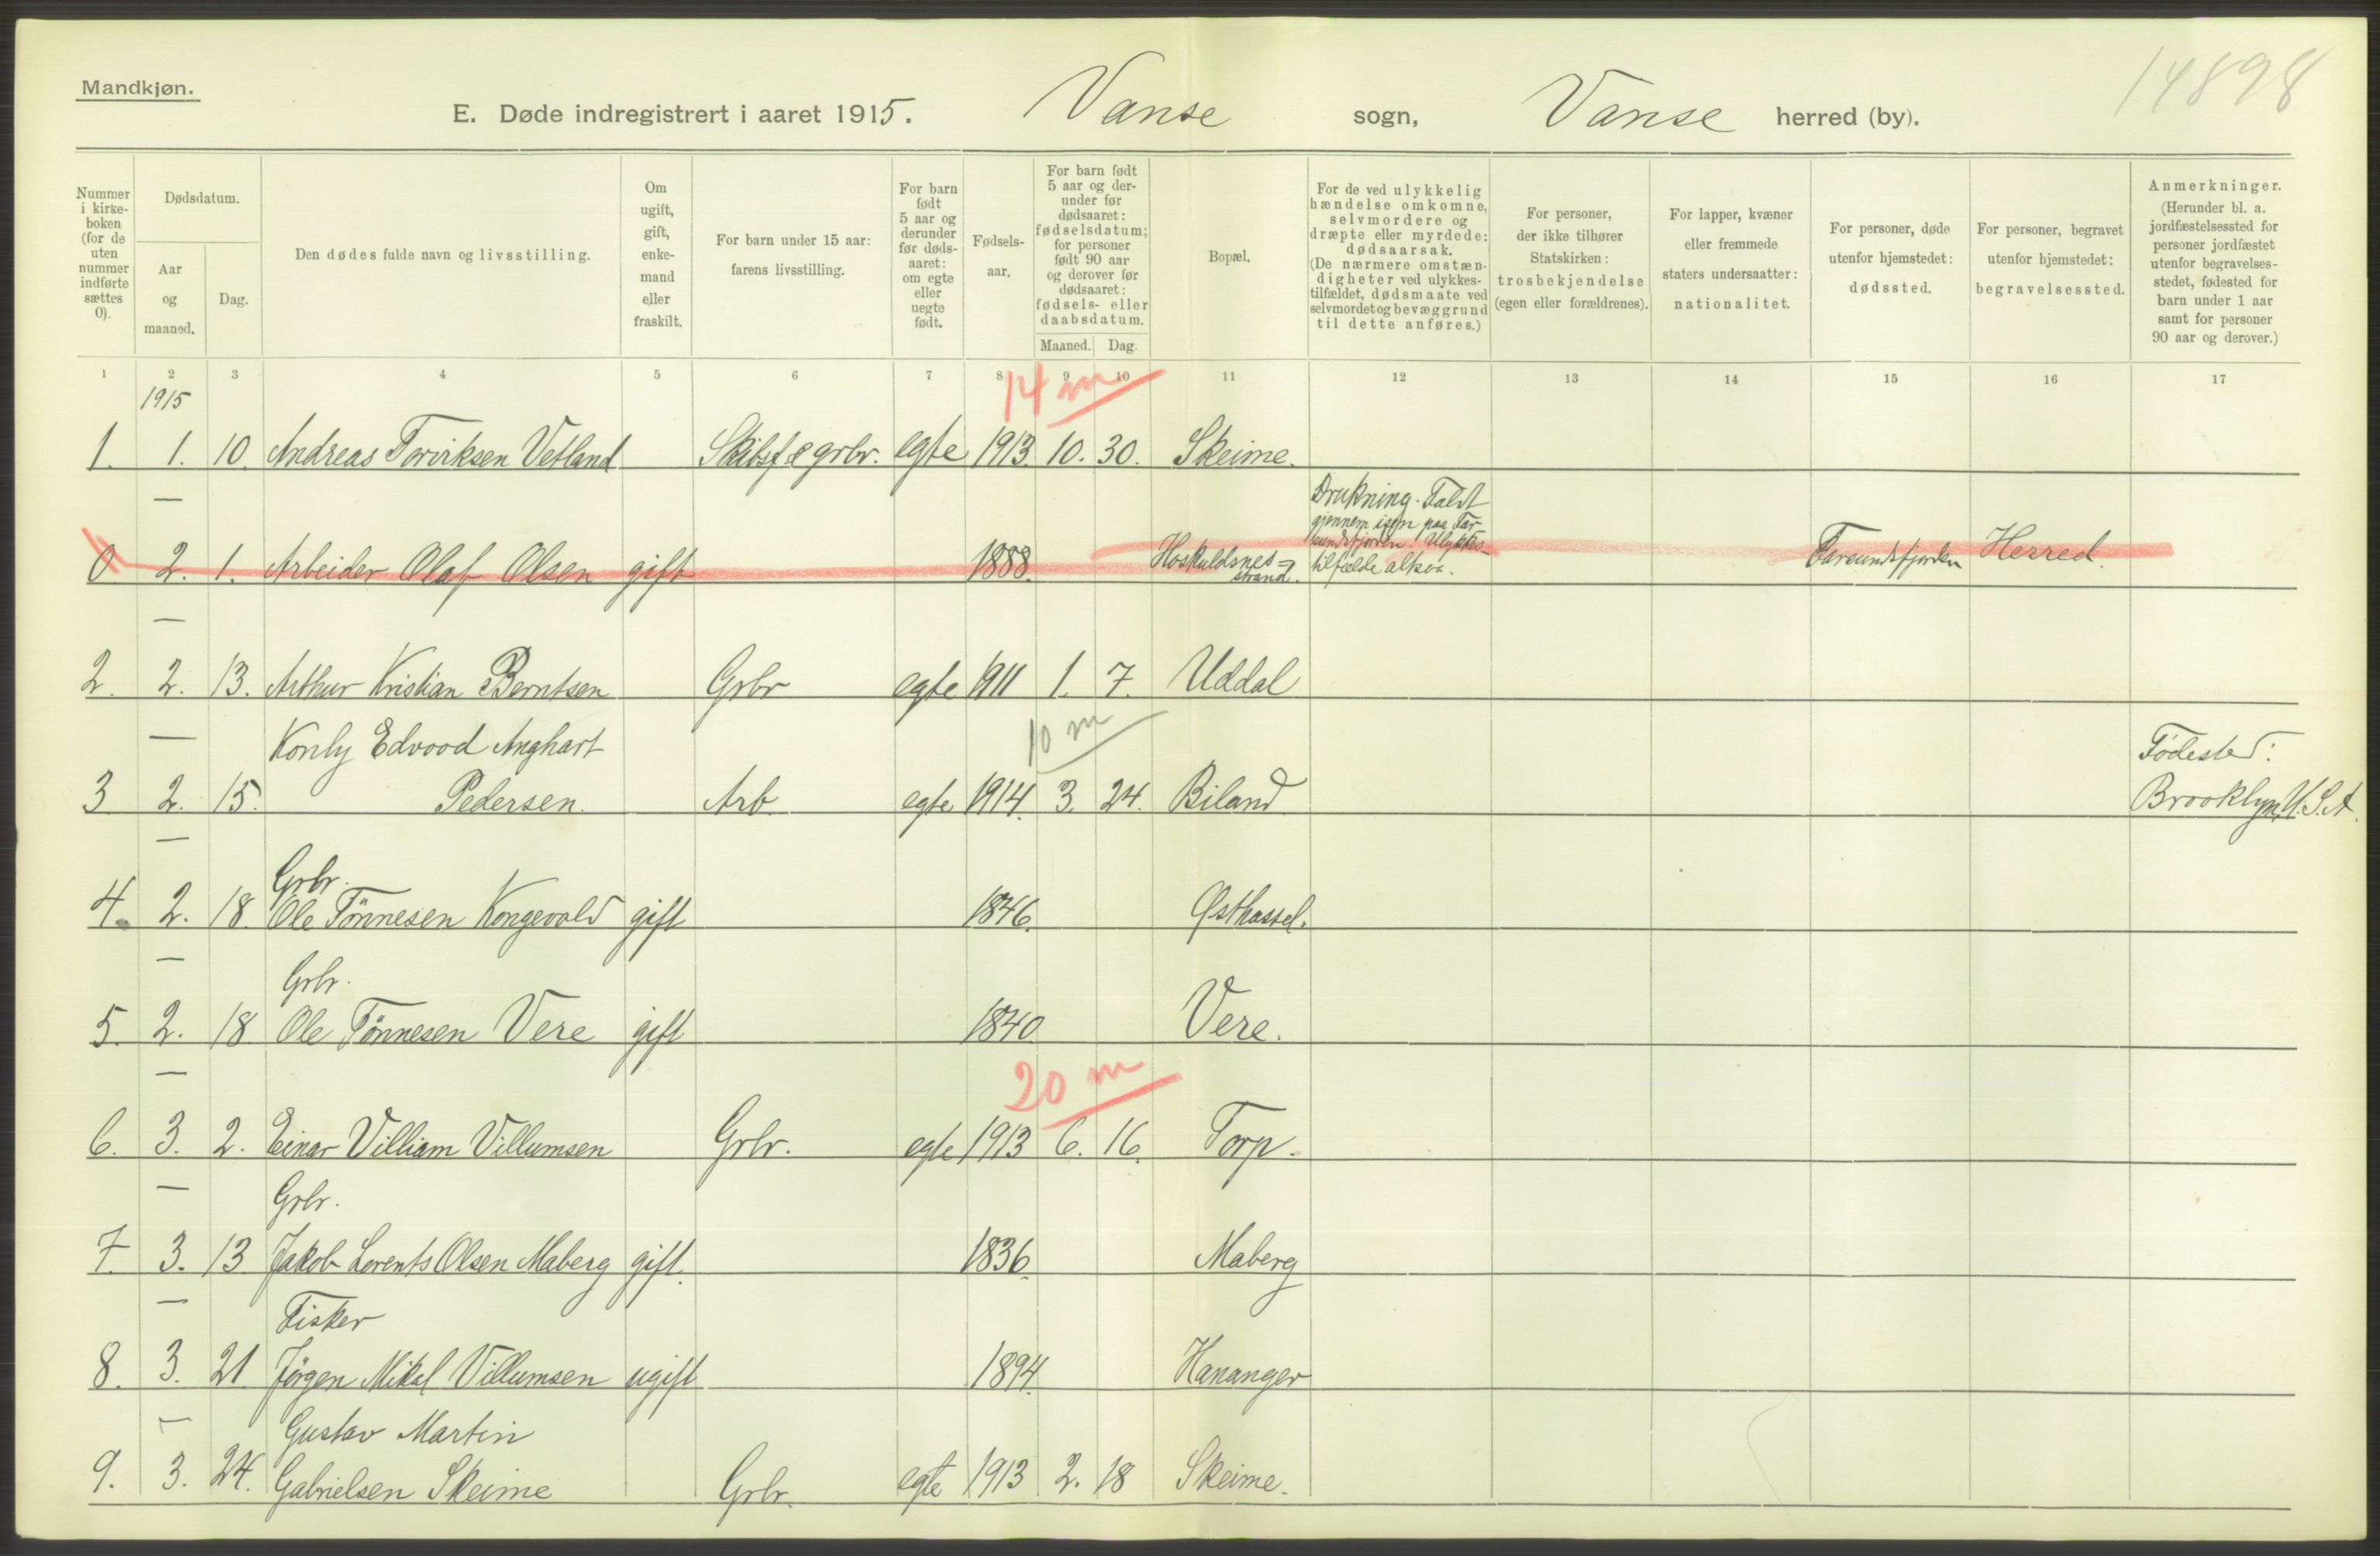 14898
Mandkjøn.
E. Døde indregistrert i aaret 1915. Vanse sogn, Vanse herred (by).
Nummer i kirke- boken (for de uten nummer indførte sættes 0).
Dødsdatum.
Aar og maaned.
Dag.
Den dødes fulde navn og livsstilling.
Om ugift, gift, enke- mand eller fraskilt.
For barn under 15 aar: farens livsstilling.
For barn født 5 aar og derunder før døds- aaret: om egte eller uegte født.
Fødsels- aar.
For barn født 5 aar og der- under før dødsaaret: fødselsdatum; for personer født 90 aar og derover før dødsaaret: fødsels- eller daabsdatum.
Maaned. Dag.
Bopæl.
For de ved ulykkelig hændelse omkomne, selvmordere og dræpte eller myrdede: dødsaarsak. (De nærmere omstæn- digheter ved ulykkes- tilfældet, dødsmaate ved selvmordet og bevæggrund til dette anføres.)
For personer, der ikke tilhører Statskirken: trosbekjendelse (egen eller forældrenes).
For lapper, kvæner eller fremmede staters undersaatter: nationalitet.
For personer, døde utenfor hjemstedet: dødssted.
For personer, begravet utenfor hjemstedet: begravelsessted.
Anmerkninger. (Herunder bl. a. jordfæstelsessted for personer jordfæstet utenfor begravelses- stedet, fødested for barn under 1 aar samt for personer 90 aar og derover.)
1 2 3 4 5 6 7 8 9 10 11 12 13 14 15 16 17
1915
14 m
1. 1. 10. Andreas Torviksen Vetland Skibsf. & grbr. egte 1913. 10. 30. Skeime.
—
Drukning. Faldt
gjennem isen paa Far-
sundsfjorden Ulykkes-
0 2. 1. Arbeider Olaf Olsen gift 1888. Hoskuldsnes= tilfælde Farsundsfjorden Herred.
strand.
—
2. 2. 13. Arthur Kristian Berntsen Grbr egte 1911 1. 7. Uddal
— 10 m
Edvood Anghart Fødested:
3 2. 15. Pedersen. Arb egte 1914. 3. 24. Biland Brooklyn, U.S.A.
—
Grbr.
4. 2. 18. Ole Tönnesen Kongevold gift 1846. Østhassel.
—
Grbr.
5. 2. 18 Ole Tönnesen Vere gift 1840 Vere.
— 20 m
6. 3. 2. Einar Villiam Villumsen Grbr. egte 1913 6. 16. Torp.
—
Grbr.
7. 3. 13 Jakob Lorents Olsen Maberg gift. 1836. Maberg
—
Fisker
8. 3. 21 Jörgen Mikal Villumsen ugift 1894. Hananger
—
Gustav Martin
9. 3. 24. Gabrielsen Skeime Grbr. egte 1913 2. 18 Skeime.